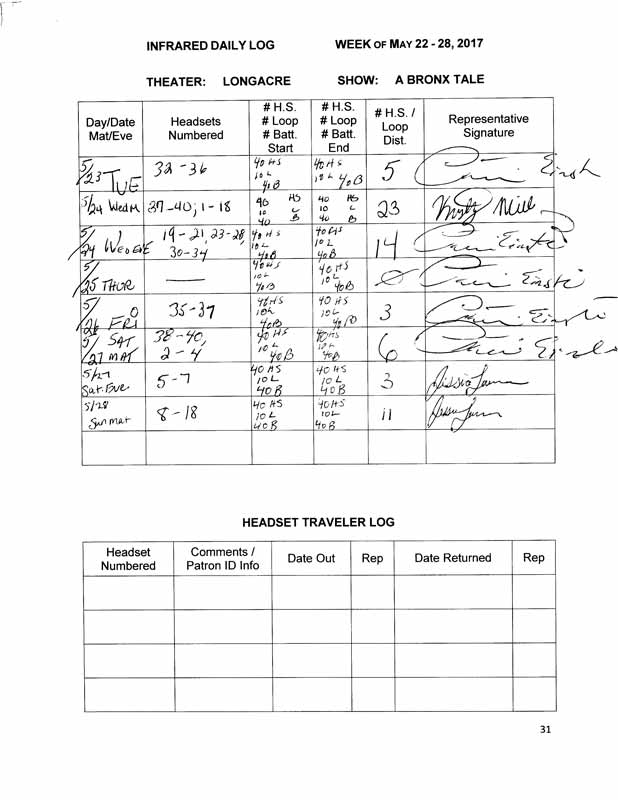 INFRARED DAILY LOG WEEK OF MAY 22 - 28, 2017
THEATER: LONGACRE SHOW: A BRONX TALE
Day/Date Mat/Eve Headsets Numbered # H.S. # Loop # Batt. Start # H.S. # Loop # Batt. End # H.S. / Loop Dist. Representative Signature
5/23 TUE 32-36 40 HS 10 L 40B 40 HS 10 L 40B 5
5/24 Wed M 37-40; 1-18 40 HS 10 L 40 B 40 HS 10 L 40 B 23
5/24 Wed EVE 19-21, 23-28, 30-34 40 HS 10 L 40B 40 HS 10 L 40B 14
5/25 THUR — 40 HS 10 L 40B 40 HS 10 L 40B 0
5/26 FRI 35-37 40 HS 10 L 40B 40 HS 10 L 40B 3
5/27 SAT MAT 38-40, 2-4 40 HS 10 L 40B 40 HS 10 L 40B 6
5/27 Sat. Eve 5-7 40 HS 10 L 40B 40 HS 10 L 40B 3
5/28 Sun mat 8-18 40 HS 10 L 40B 40 HS 10 L 40B 11
HEADSET TRAVELER LOG
Headset Numbered Comments / Patron ID Info Date Out Rep Date Returned Rep
31